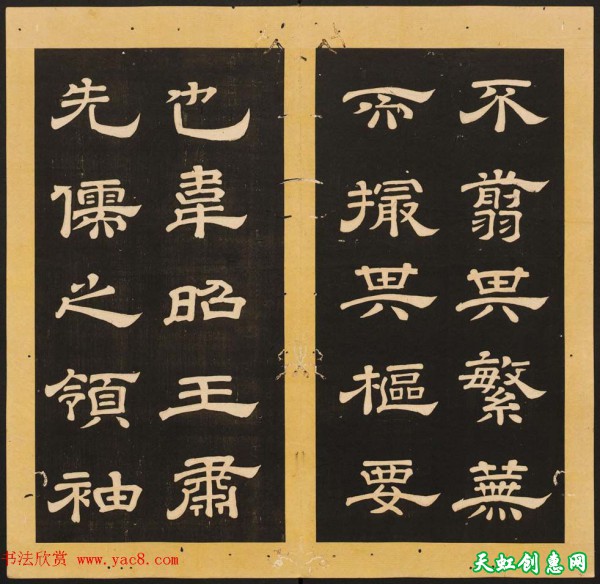 不翦其繁蕪
而撮其樞要
也韋昭王肅
先儒之領袖
书法欣赏 www.yac8.com
天虹创惠网